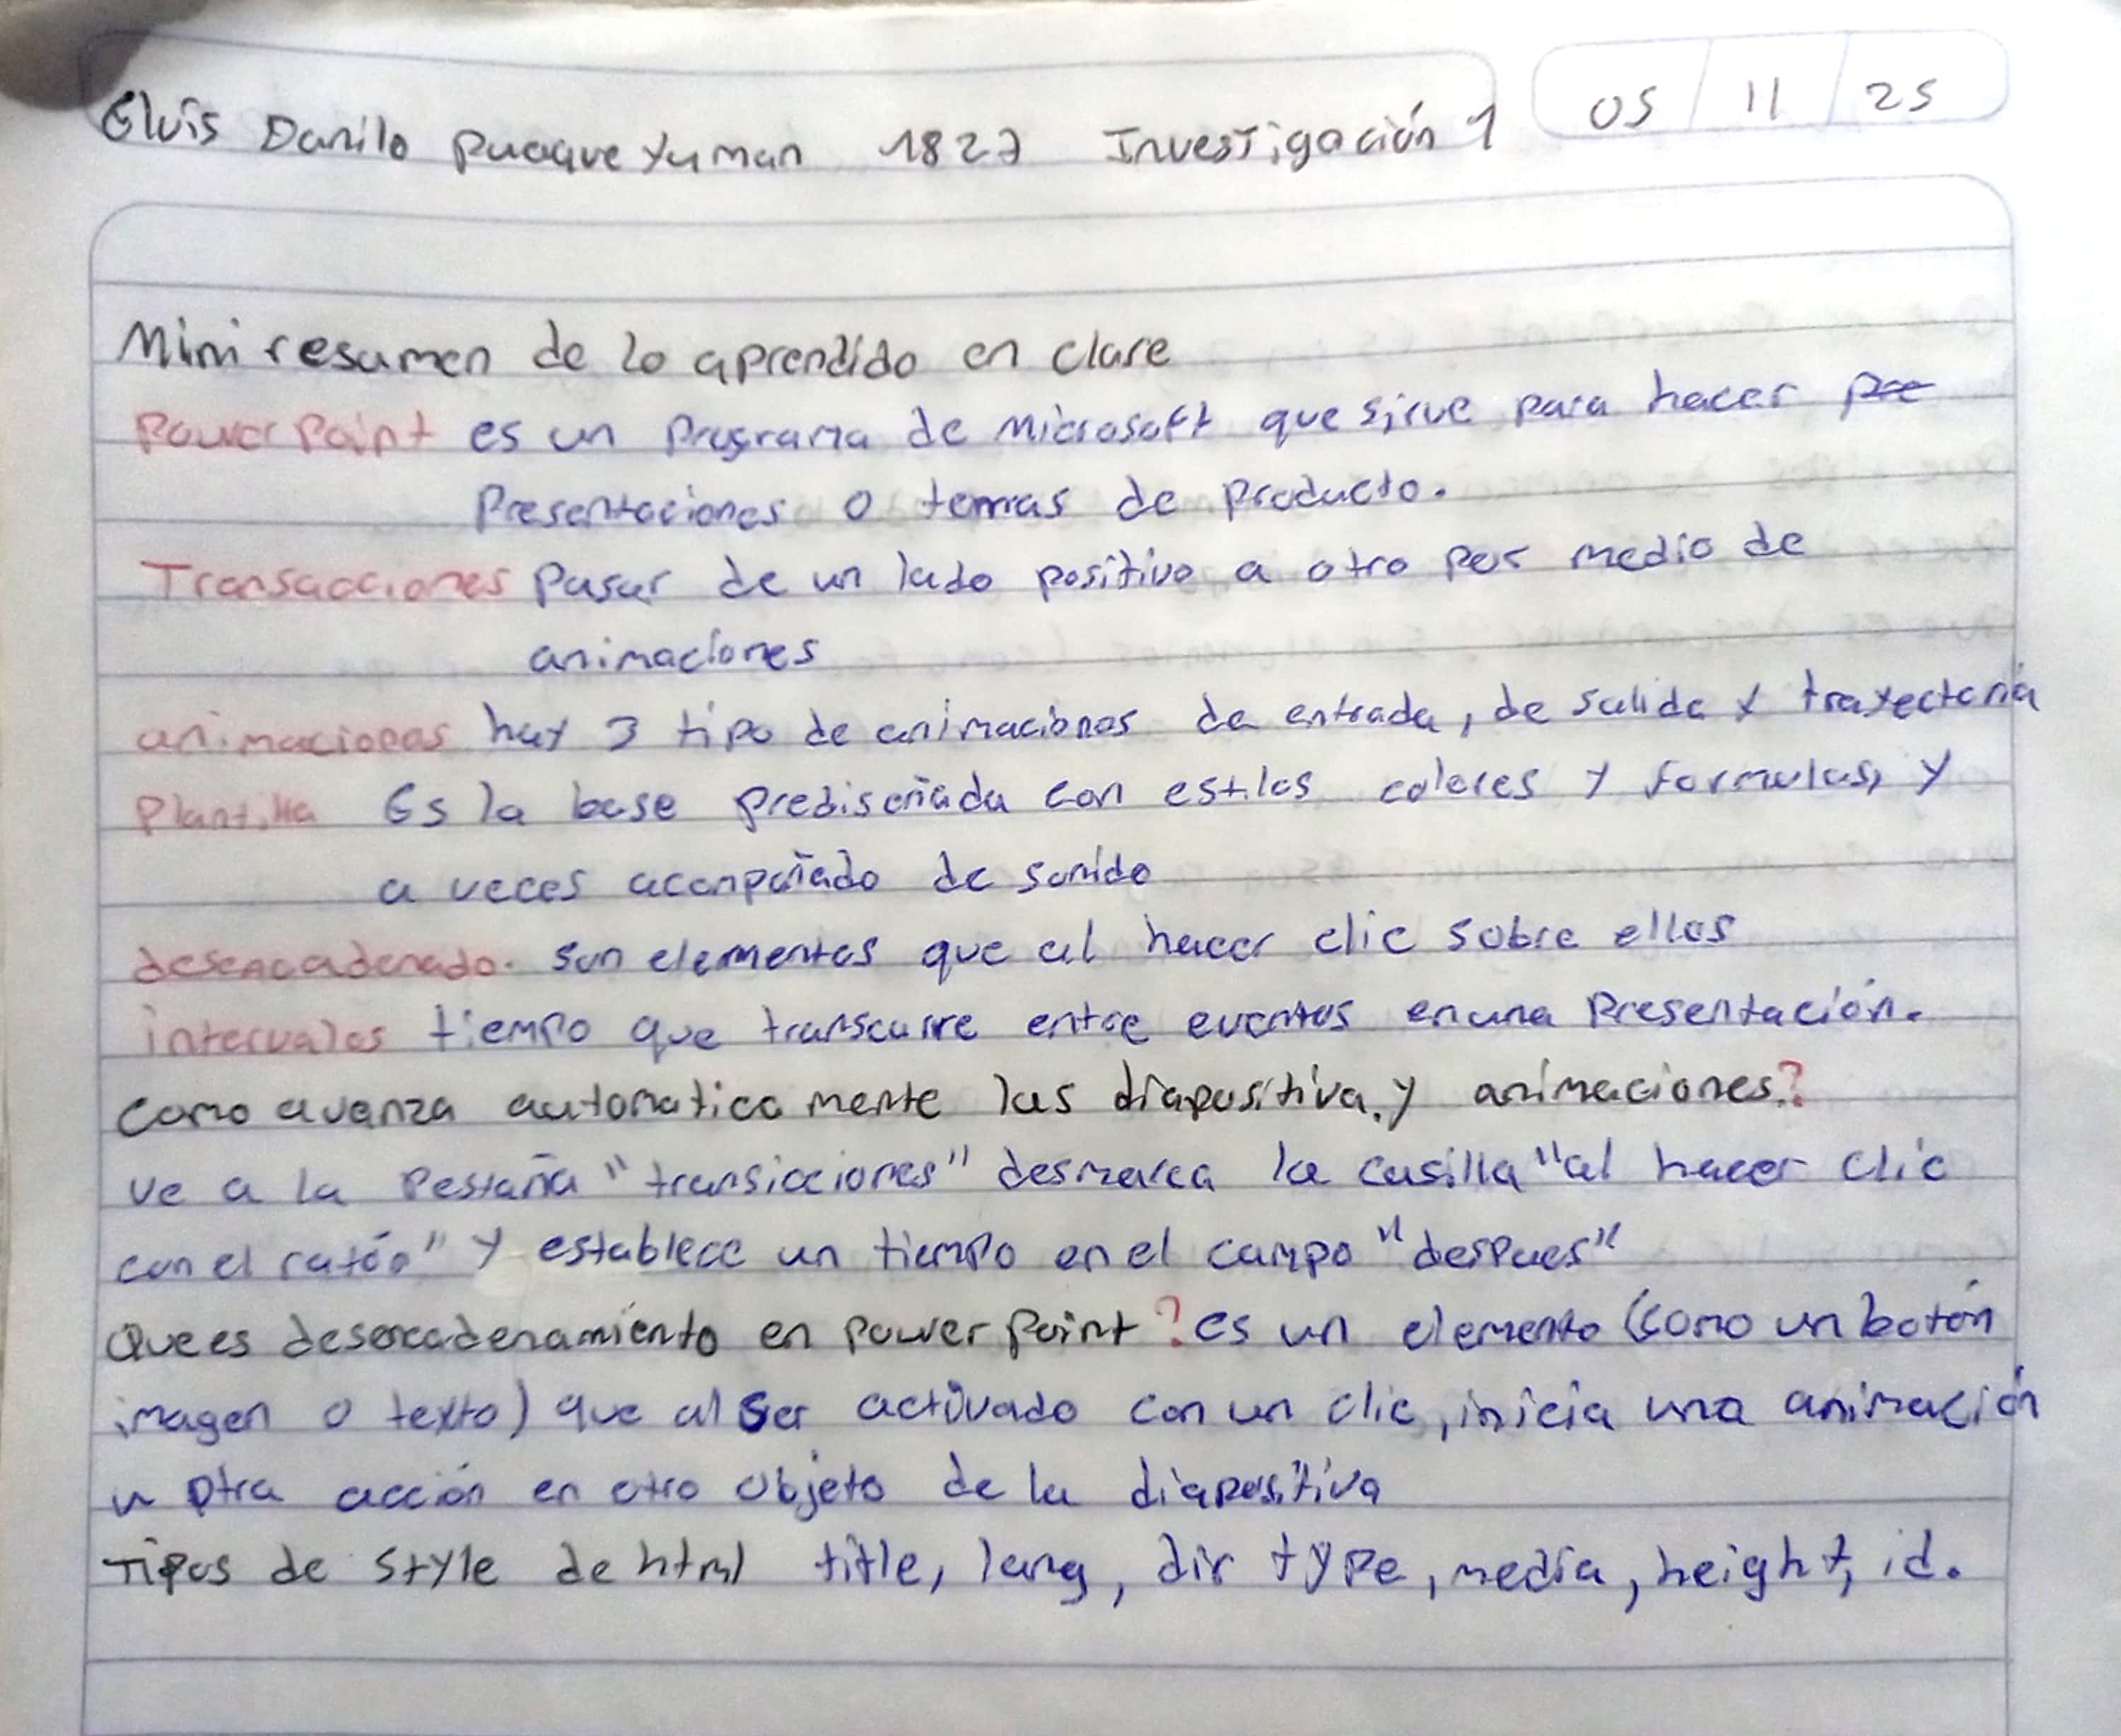 Elvis Danilo Puaque Yuman 1827 Investigación 1 05 / 11 / 25
Mini resumen de lo aprendido en clase
Power Point es un Programa de Microsoft que sirve para hacer pre
Presentaciones o temas de producto.
Transacciones Pasar de un lado positivo a otro por medio de
animaciones
animaciones hay 3 tipo de animaciones de entrada, de salida y trayectoria
Plantilla Es la base prediseñada con estilos colores y formulas, y
a veces acompañado de sonido
desencadenado. Son elementos que al hacer clic sobre ellos
intervalos tiempo que transcurre entre eventos en una Presentación.
Como avanza automatica mente las diapositiva. y animaciones?
ve a la Pestaña "transicciones" desmarca la casilla "al hacer clic
con el ratón" y establece un tiempo en el campo "despues"
Que es desencadenamiento en power point? es un elemento (como un botón
imagen o texto) que al ser activado con un clic, inicia una animación
u otra acción en otro objeto de la diapositiva
Tipos de style de html title, lang, dir type, media, height, id.